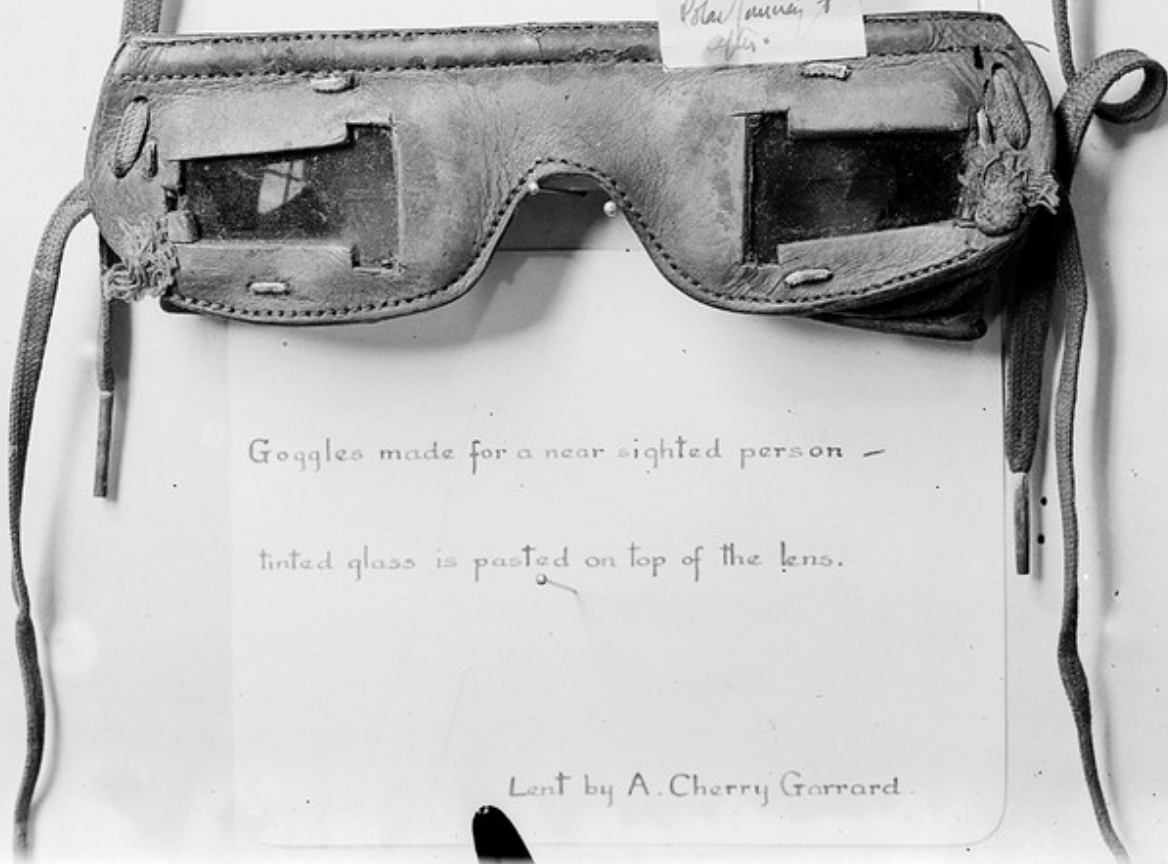 Polar Journey &
after.
Goggles made for a near sighted person –
tinted glass is pasted on top of the lens.
Lent by A. Cherry Garrard.